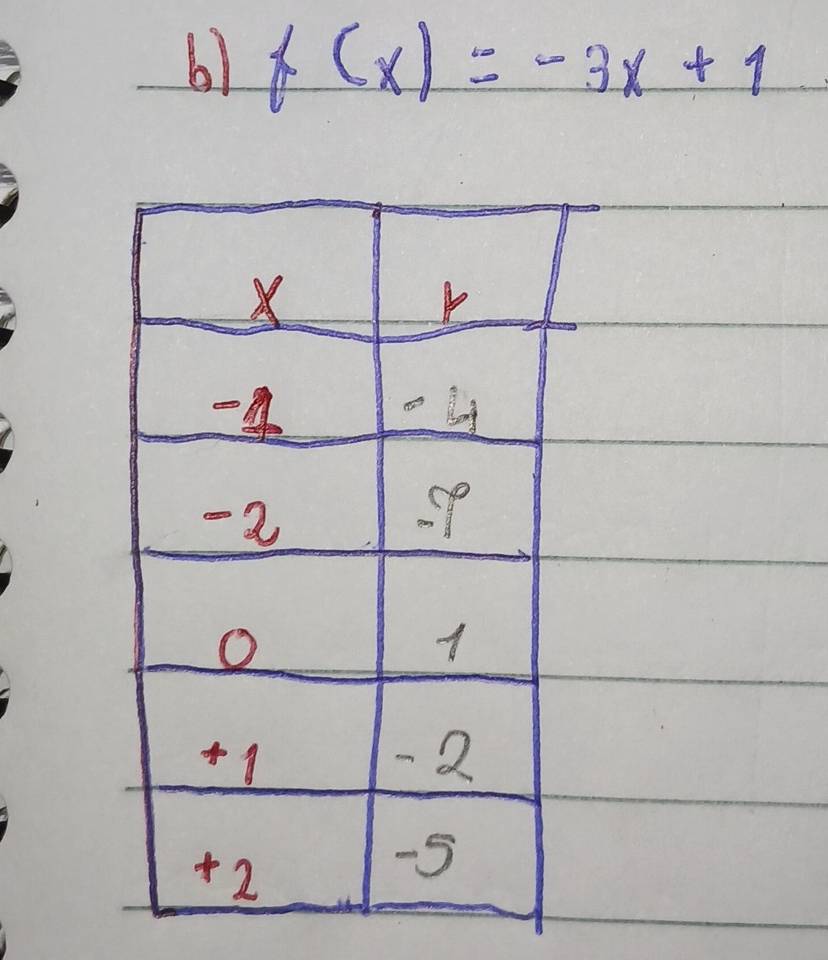 b) f(x) = -3x + 1
x y
-1 -4
-2 -7
0 1
+1 -2
+2 -5